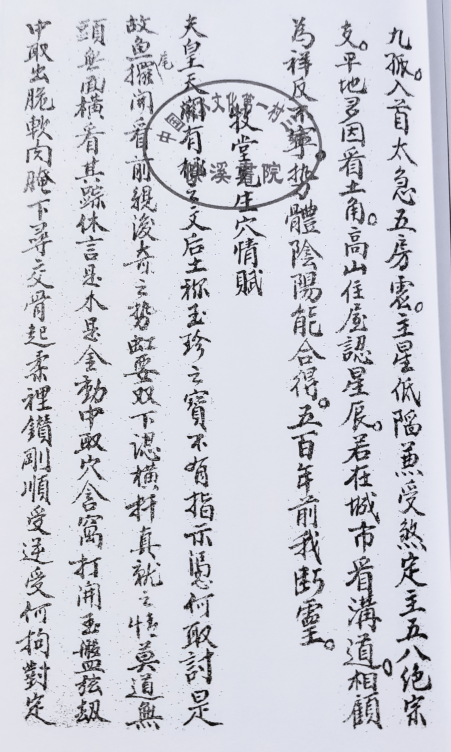 九振入首太急五房虛。主星低陷兼受煞定主五八絕宗
支。平地多因看土角。高山住屋認星辰。若在城市看溝道相顧
為祥反不寧。勢體陰陽能合得。五百年前我斷靈。
牧堂先生穴情賦
夫皇天開有極之文后土袮玉珍之寶不有指示憑何取討是
故魚擺尾開看前親後奇之勢虹要双下認橫打真就之情莫道無
頭無尾橫看其踪休言是木是金動中取穴含窩打開玉盤弦刼
中取出脆軟肉腌下尋交骨起柔裡鑽剛順受逆受何拘對定
中國 文化第一村
溪書院